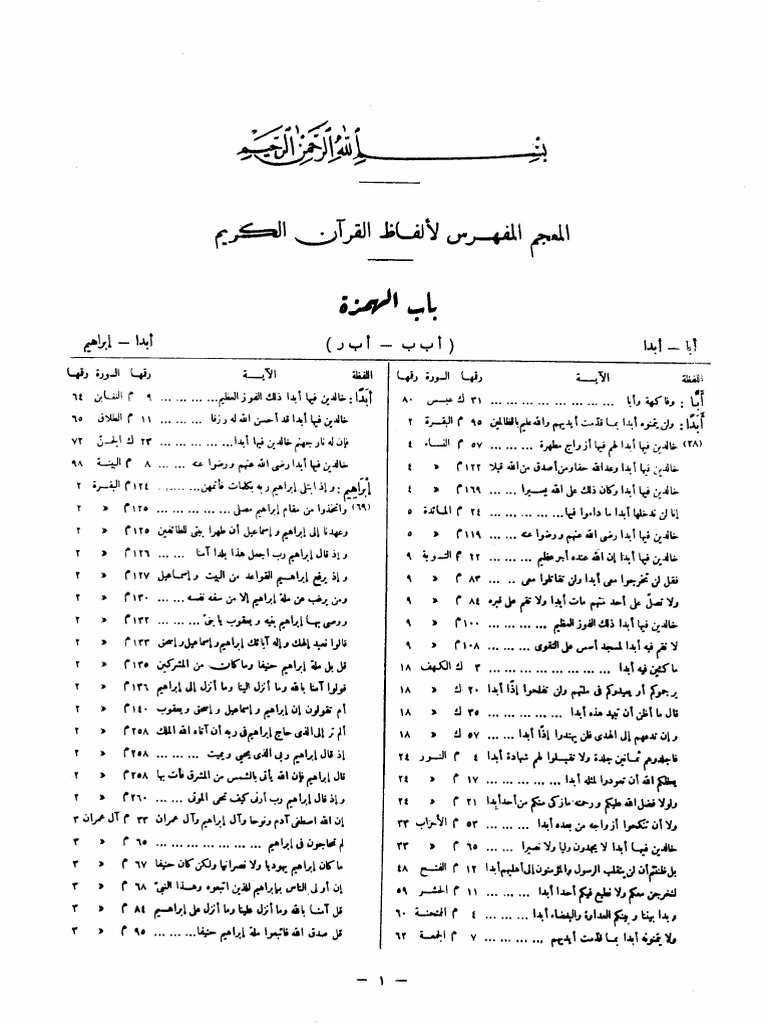 بسم الله الرحمن الرحيم
المعجم المفهرس لألفاظ القرآن الكريم
باب الهمزة
أبا – أبدا
( أ ب ب – أ ب ر )
أبدا – إبراهيم
اللفظة الآية رقمها السورة رقمها
أَبًّا : وفاكهة وأبا ... ... ... ... ... ... ... ٣١ ك عبس ٨٠
أَبَدًا : ولن يتمنوه أبدا بما قدّمت أيديهم والله عليم بالظالمين ٩٥ م البقرة ٢
(٢٨) خالدين فيها أبدا لهم فيها أزواج مطهرة ... ... ... ٥٧ م النساء ٤
خالدين فيها أبدا وعد الله حقا ومن أصدق من الله قيلا ١٢٢ م » ٤
خالدين فيها أبدا وكان ذلك على الله يسيرا ... ... ١٦٩ م » ٤
إنا لن ندخلها أبدا ما داموا فيها ... ... ... ... ٢٤ م المائدة ٥
خالدين فيها أبدا رضى الله عنهم ورضوا عنه ... ... ١١٩ م » ٥
خالدين فيها أبدا إن الله عنده أجر عظيم ... ... ٢٢ م التوبة ٩
فقل لن تخرجوا معى أبدا ولن تقاتلوا معى ... ... ٨٣ م » ٩
ولا تصلّ على أحد منهم مات أبدا ولا تقم على قبره ٨٤ م » ٩
خالدين فيها أبدا ذلك الفوز العظيم ... ... ... ١٠٠ م » ٩
لا تقم فيه أبدا لمسجد أسس على التقوى ... ... ... ١٠٨ م » ٩
ماكثين فيه أبدا ... ... ... ... ... ... ... ٣ ك الكهف ١٨
يرجموكم أو يعيدوكم فى ملتهم ولن تفلحوا إذًا أبدا ٢٠ ك » ١٨
قال ما أظن أن تبيد هذه أبدا ... ... ... ... ٣٥ ك » ١٨
وإن تدعهم إلى الهدى فلن يهتدوا إذًا أبدا ... ... ٥٧ ك » ١٨
فاجلدوهم ثمانين جلدة ولا تقبلوا لهم شهادة أبدا ٤ م النور ٢٤
يعظكم الله أن تعودوا لمثله أبدا ... ... ... ... ١٧ م » ٢٤
ولولا فضل الله عليكم ورحمته ما زكى منكم من أحد أبدا ٢١ م » ٢٤
ولا أن تنكحوا أزواجه من بعده أبدا ... ... ... ٥٣ م الأحزاب ٣٣
خالدين فيها أبدا لا يجدون وليا ولا نصيرا ... ... ٦٥ م » ٣٣
بل ظننتم أن لن ينقلب الرسول والمؤمنون إلى أهليهم أبدا ١٢ م الفتح ٤٨
لنخرجن معكم ولا نطيع فيكم أحدا أبدا ... ... ... ١١ م الحشر ٥٩
وبدا بيننا وبينكم العداوة والبغضاء أبدا ... ... ... ٤ م الممتحنة ٦٠
ولا يتمنونه أبدا بما قدّمت أيديهم ... ... ... ... ٧ م الجمعة ٦٢
اللفظة الآية رقمها السورة رقمها
أَبَدًا : خالدين فيها أبدا ذلك الفوز العظيم ... ... ... ٩ م التغابن ٦٤
خالدين فيها أبدا قد أحسن الله له رزقا ... ... ... ١١ م الطلاق ٦٥
فإن له نار جهنم خالدين فيها أبدا ... ... ... ... ٢٣ ك الجنّ ٧٢
خالدين فيها أبدا رضى الله عنهم ورضوا عنه ... ... ٨ م البينة ٩٨
إِبْرَاهِيم : وإذ ابتلى إبراهيم ربه بكلمات فأتمهن ... ... ١٢٤ م البقرة ٢
(٦٩) واتخذوا من مقام إبراهيم مصلى ... ... ... ... ١٢٥ م » ٢
وعهدنا إلى إبراهيم وإسماعيل أن طهرا بيتى للطائفين ١٢٥ م » ٢
وإذ قال إبراهيم رب اجعل هذا بلدا آمنا ... ... ١٢٦ م » ٢
وإذ يرفع إبراهيم القواعد من البيت وإسماعيل ١٢٧ م » ٢
ومن يرغب عن ملة إبراهيم إلا من سفه نفسه ... ... ١٣٠ م » ٢
ووصى بها إبراهيم بنيه ويعقوب يا بنىّ ... ... ... ١٣٢ م » ٢
قالوا نعبد إلهك وإله آبائك إبراهيم وإسماعيل وإسحق ١٣٣ م » ٢
قل بل ملة إبراهيم حنيفا وما كان من المشركين ١٣٥ م » ٢
قولوا آمنا بالله وما أنزل إلينا وما أنزل إلى إبراهيم ١٣٦ م » ٢
أم تقولون إن إبراهيم وإسماعيل وإسحق ويعقوب ١٤٠ م » ٢
ألم تر إلى الذى حاج إبراهيم فى ربه أن آتاه الله الملك ٢٥٨ م » ٢
إذ قال إبراهيم ربى الذى يحيى ويميت ... ... ... ٢٥٨ م » ٢
قال إبراهيم فإن الله يأتى بالشمس من المشرق فأت بها ٢٥٨ م » ٢
وإذ قال إبراهيم رب أرنى كيف تحيى الموتى ... ... ٢٦٠ م » ٢
إن الله اصطفى آدم ونوحا وآل إبراهيم وآل عمران ٣٣ م آل عمران ٣
لم تحاجون فى إبراهيم ... ... ... ... ... ... ٦٥ م » ٣
ما كان إبراهيم يهوديا ولا نصرانيا ولكن كان حنيفا ٦٧ م » ٣
إن أولى الناس بإبراهيم للذين اتبعوه وهذا النبىّ ٦٨ م » ٣
قل آمنا بالله وما أنزل علينا وما أنزل على إبراهيم ٨٤ م » ٣
قل صدق الله فاتبعوا ملة إبراهيم حنيفا ... ... ... ٩٥ م » ٣
– ١ –